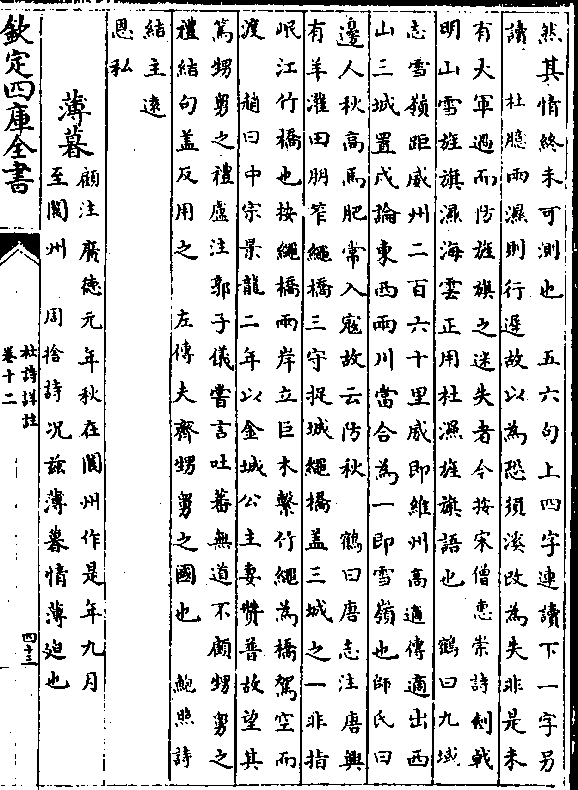 然其情終未可測也　五六句上四字連讀下一字另
讀　杜臆雨濕則行遲故以為恐須溪改為失非是未
有大軍過而防旌旗之迷失者今按宋僧惠崇詩劍戟
明山雪旌旗濕海雲正用杜濕旌旗語也　鶴曰九域
志雪嶺距威州二百六十里威即維州高適傳適出西
山三城置戍論東西兩川當合為一即雪嶺也師氏曰
邊人秋高馬肥常入寇故云防秋　鶴曰唐志注唐興
有羊灌田朋笮繩橋三守捉城繩橋蓋三城之一非指
岷江竹橋也按繩橋兩岸立巨木繫竹繩為橋駕空而
渡　趙曰中宗景龍二年以金城公主妻贊普故望其
篤甥舅之禮盧注郭子儀嘗言吐蕃無道不顧甥舅之
禮結句蓋反用之　左傳夫齊甥舅之國也　鮑照詩
結主遠
恩私
薄暮
顧注廣德元年秋在閬州作是年九月
至閬州　周捨詩况茲薄暮情薄迫也
欽定四庫全書
杜詩詳註
卷十二
四十三